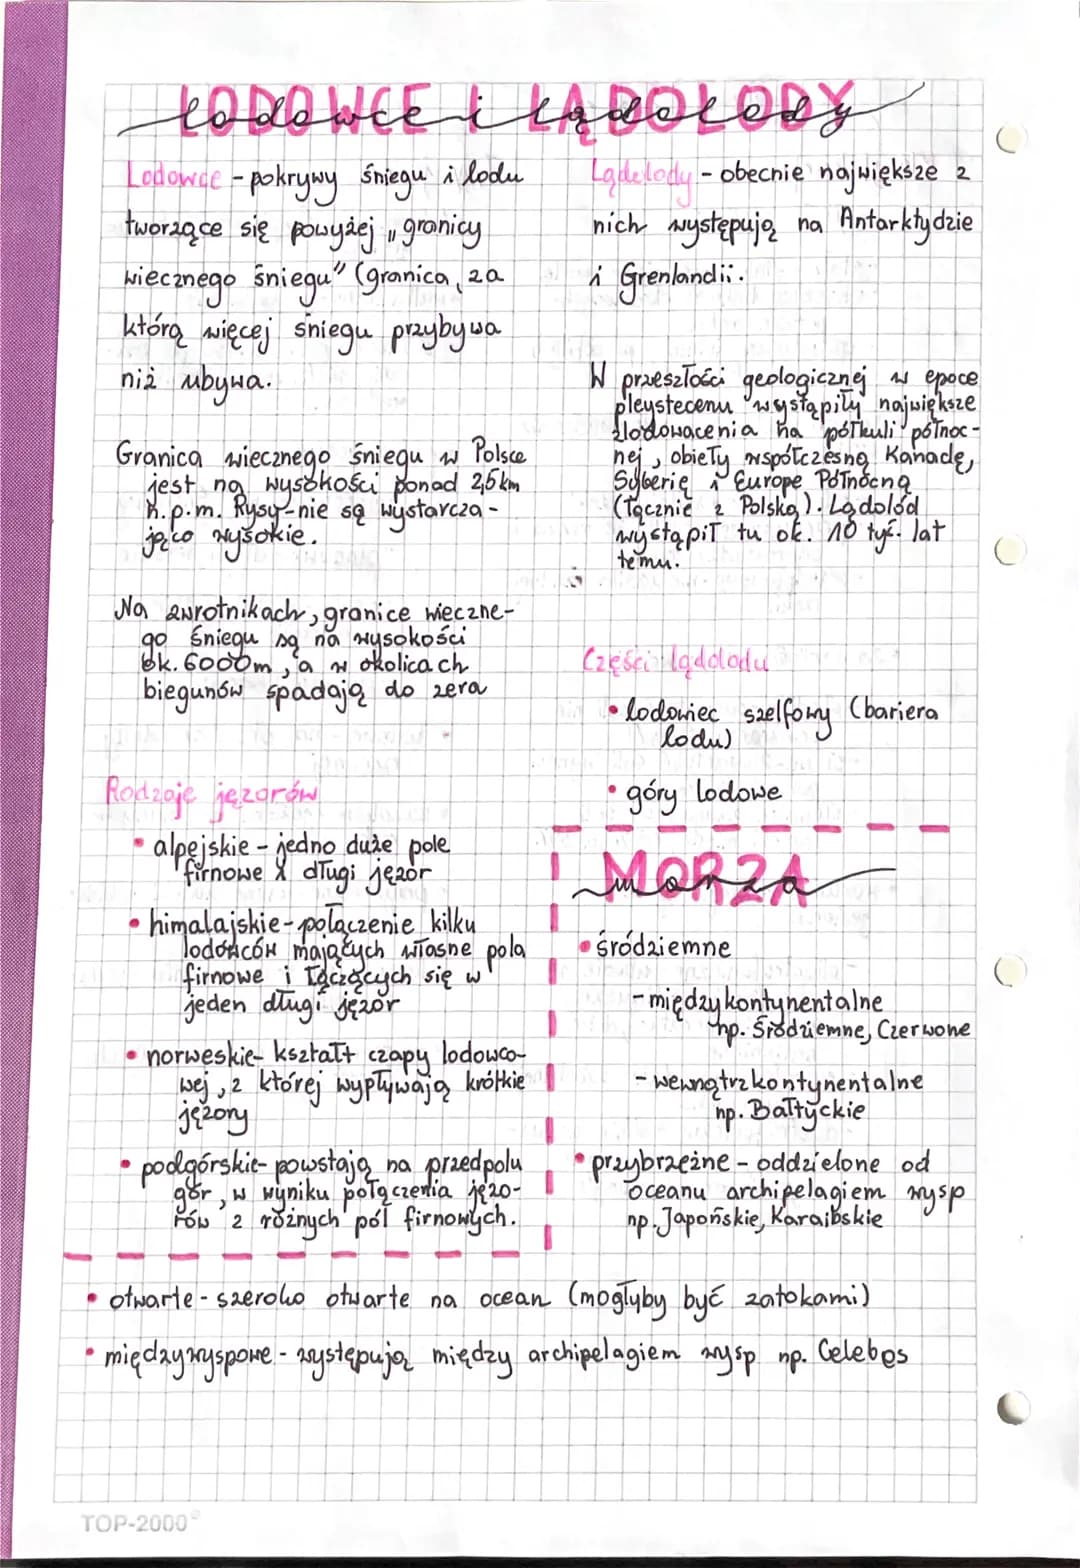 LODOWCE i LĄDOLODY
lodowce i lądolody
Lodowce - pokrywy śniegu i lodu
tworzące się powyżej „granicy
wiecznego śniegu" (granica, za
którą więcej śniegu przybywa
niż ubywa.
Granica wiecznego śniegu w Polsce
jest na wysokości ponad 2,5 km
n.p.m. Rysy-nie są wystarcza-
jąco wysokie.
Na zwrotnikach, granice wieczne-
go śniegu są na wysokości
ok. 6000m, a w okolicach
biegunów spadają do zera
Rodzaje jęzorów
• alpejskie - jedno duże pole
firnowe X długi jęzor
• himalajskie - połączenie kilku
lodowców mających własne pola
firnowe i łączących się w
jeden długi jęzor
• norweskie - kształt czapy lodowco-
wej, z której wypływają krótkie
jęzory
• podgórskie - powstają na przedpolu
gór, w wyniku połączenia jęzo-
rów z różnych pól firnowych.
Lądolody - obecnie największe z
nich występują na Antarktydzie
i Grenlandii.
W przeszłości geologicznej w epoce
pleystecenu wystąpiły największe
zlodowacenia na półkuli północ-
nej, obieły współczesną Kanadę,
Syberię i Europe Północną
(łącznie z Polską). Lądolód
wystąpił tu ok. 10 tyś. lat
temu.
Części lądolodu
• lodowiec szelfowy (bariera
lodu)
• góry lodowe
MORZA
morza
• śródziemne
- międzykontynentalne
np. Śródziemne, Czerwone
- wewnątrzkontynentalne
np. Bałtyckie
• przybrzeżne - oddzielone od
oceanu archipelagiem wysp
np. Japońskie, Karaibskie
• otwarte - szeroko otwarte na ocean (mogłyby być zatokami)
• międzywyspowe - występują między archipelagiem wysp np. Celebes
TOP-2000®